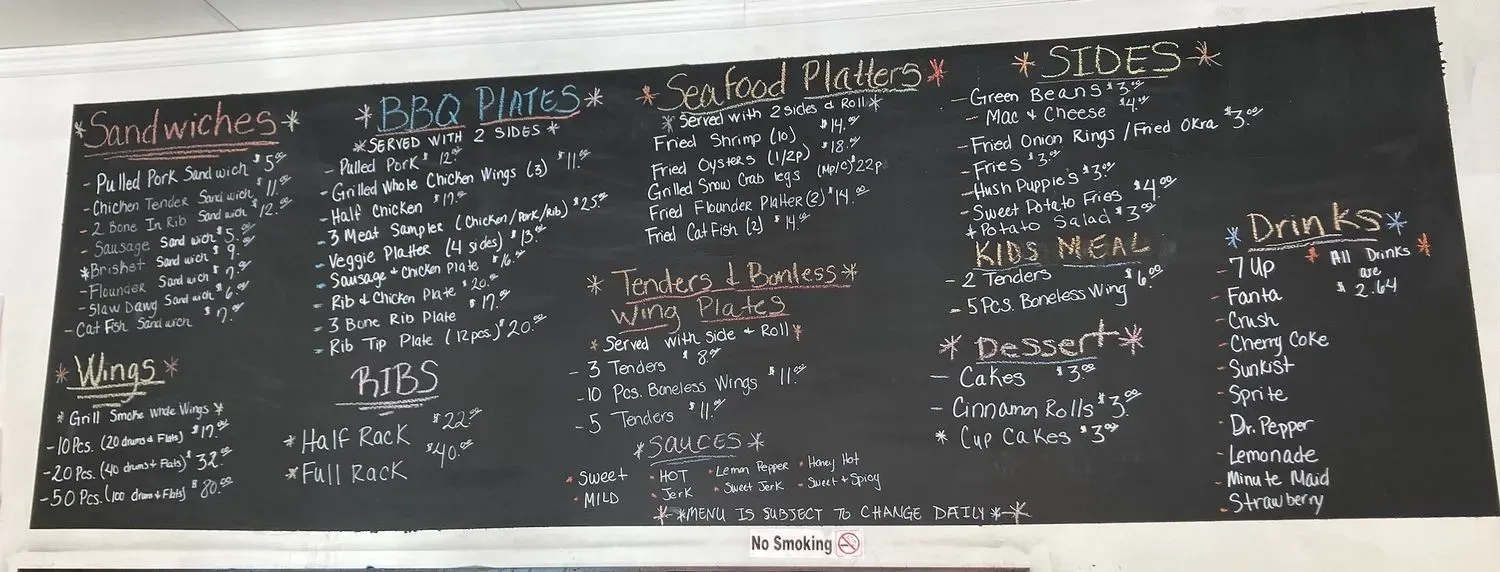 *Sandwiches*
- Pulled Pork Sandwich $5.00
- Chicken Tender Sandwich $11.00
- 2 Bone In Rib Sandwich $12.00
- Sausage Sandwich $5.00
*Brisket Sandwich $9.00
- Flounder Sandwich $7.00
- Slaw Dawg Sandwich $6.00
- Cat Fish Sandwich $7.00
*Wings*
* Grill Smoke Whole Wings *
- 10 Pcs. (20 drums & Flats) $17.00
- 20 Pcs. (40 drums + Flats) $32.00
- 50 Pcs. (100 drums + Flats) $80.00
*BBQ PLATES*
*SERVED WITH 2 SIDES*
- Pulled Pork $12.00
- Grilled Whole Chicken Wings (3) $11.00
- Half Chicken $17.00
- 3 Meat Sampler (Chicken/Pork/Rib) $25.00
- Veggie Platter (4 sides) $13.00
- Sausage + Chicken Plate $16.00
- Rib & Chicken Plate $20.00
- 3 Bone Rib Plate $17.00
- Rib Tip Plate (12pcs.) $20.00
RIBS
* Half Rack $22.00
* Full Rack $40.00
*Seafood Platters*
*Served with 2 sides & Roll*
Fried Shrimp (10) $14.00
Fried Oysters (1/2p) $18.00
Grilled Snow Crab legs (Mp/c) $22p
Fried Flounder Platter (2) $14.00
Fried CatFish (2) $14.00
* Tenders & Bonless*
Wing Plates
*Served with side + Roll*
- 3 Tenders $8.00
-10 Pcs. Boneless Wings $11.00
- 5 Tenders $11.00
*SAUCES*
* Sweet
* MILD
* HOT
* Jerk
* Lemon Pepper
* Sweet Jerk
* Honey Hot
* Sweet + Spicy
* *MENU IS SUBJECT TO CHANGE DAILY* *
*SIDES*
- Green Beans $3.00
- Mac & Cheese $4.00
- Fried Onion Rings / Fried Okra $3.00
- Fries $3.00
- Hush Puppie's $3.00
- Sweet Potato Fries $4.00
* Potato Salad $3.00
KIDS MEAL
- 2 Tenders
- 5 Pcs. Boneless Wing $6.00
* Dessert *
- Cakes $3.00
- Cinnamon Rolls $3.00
* Cup Cakes $3.00
*Drinks*
* All Drinks *
are
$ 2.64
- 7 Up
- Fanta
- Crush
- Cherry Coke
- Sunkist
- Sprite
- Dr. Pepper
- Lemonade
- Minute Maid
- Strawberry
No Smoking